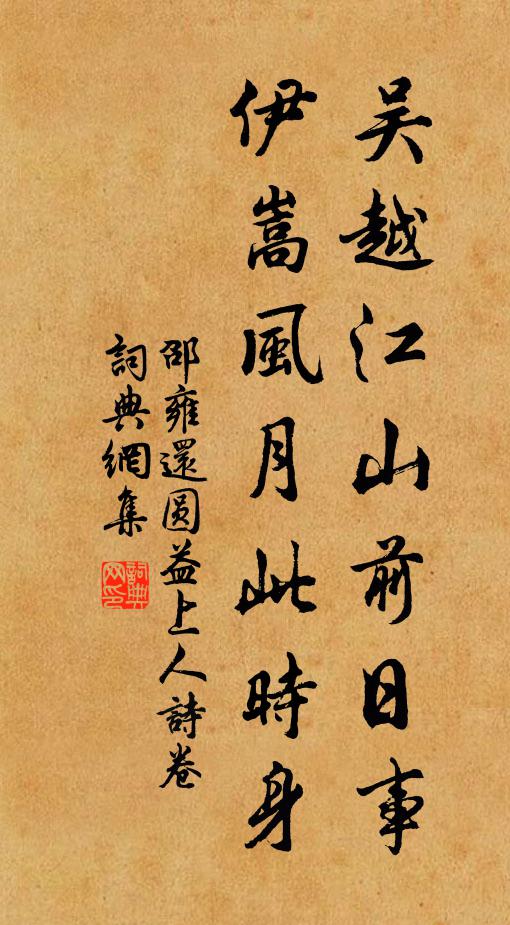 吴越江山前日事
伊嵩風月此時身
邵雍還圓益上人詩卷
詞典網集
詞典网印